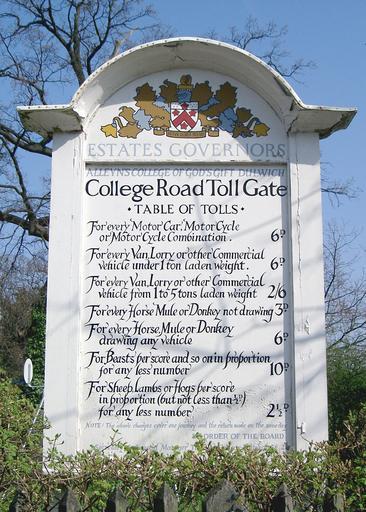 ESTATES GOVERNORS
ALLEYN'S COLLEGE OF GOD'S GIFT DULWICH
College Road Toll Gate
• TABLE OF TOLLS •
For every Motor Car, Motor Cycle
or Motor Cycle Combination. 6D
For every Van, Lorry or other Commercial
vehicle under 1 ton laden weight. 6D
For every Van, Lorry or other Commercial
vehicle from 1 to 5 tons laden weight 2/6
For every Horse, Mule or Donkey not drawing 3D
For every Horse, Mule or Donkey
drawing any vehicle 6D
For Beasts per score and so on in proportion
for any less number 10D
For Sheep, Lambs or Hogs per score
in proportion (but not less than ½D)
for any less number 2½D
NOTE: The above charges cover one journey and the return made on the same day
BY ORDER OF THE BOARD